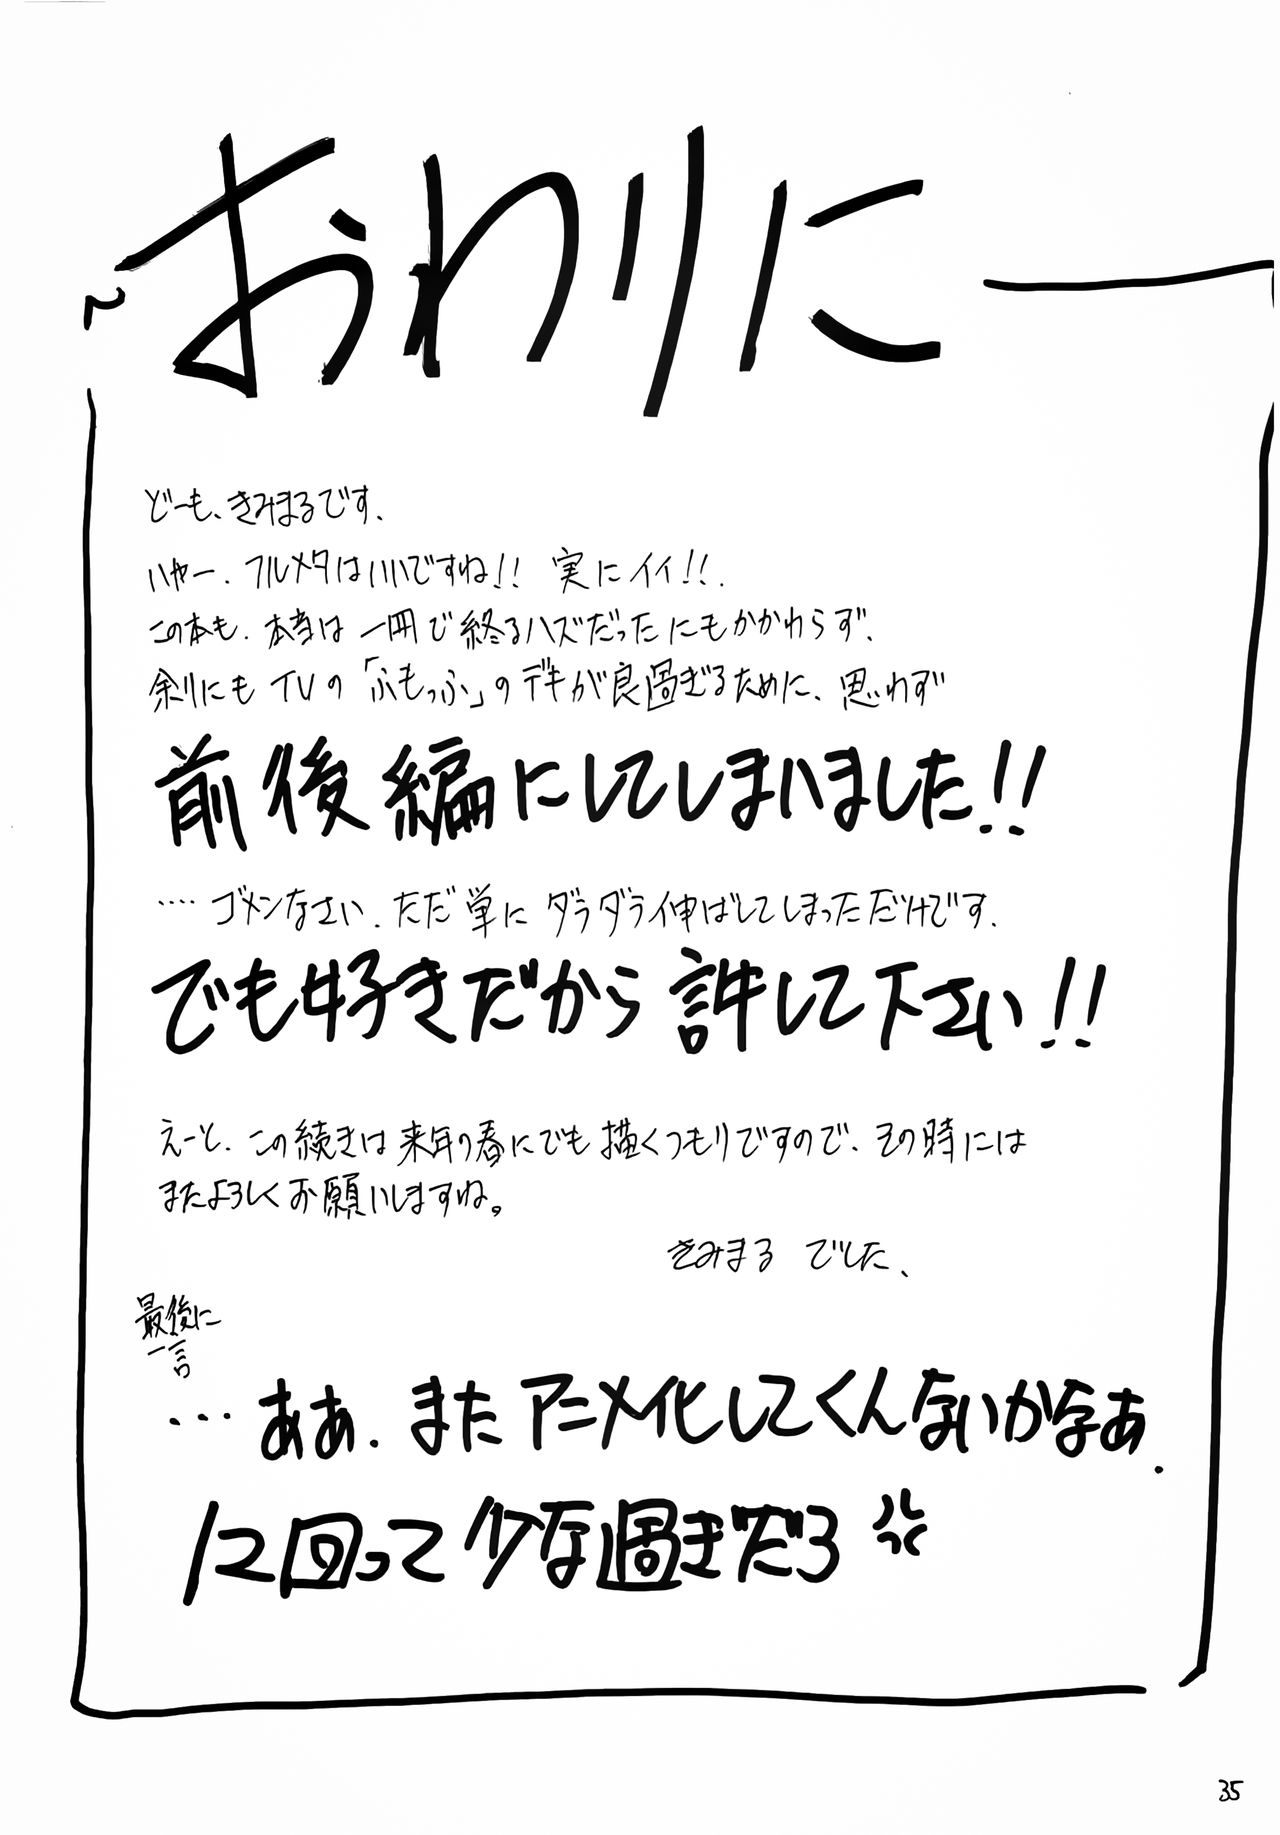 おわりに
どーも、きみまるです、
いやー、フルメタはいいですね!! 実にイイ!!、
この本も、本当は一冊で終るハズだったにもかかわらず、
余りにもTVの「ふもっふ」のデキが良過ぎるために、思わず
前後編にしてしまいました!!
‥‥ゴメンなさい、ただ単にダラダラ伸ばしてしまっただけです、
でも好きだから許して下さい!!
えーと、この続きは来年の春にでも描くつもりですので、その時には
またよろしくお願いしますね。
きみまる でした、
最後に
一言
…ああ、またアニメ化してくんないかなぁ.
12回って少な過ぎだろ
35